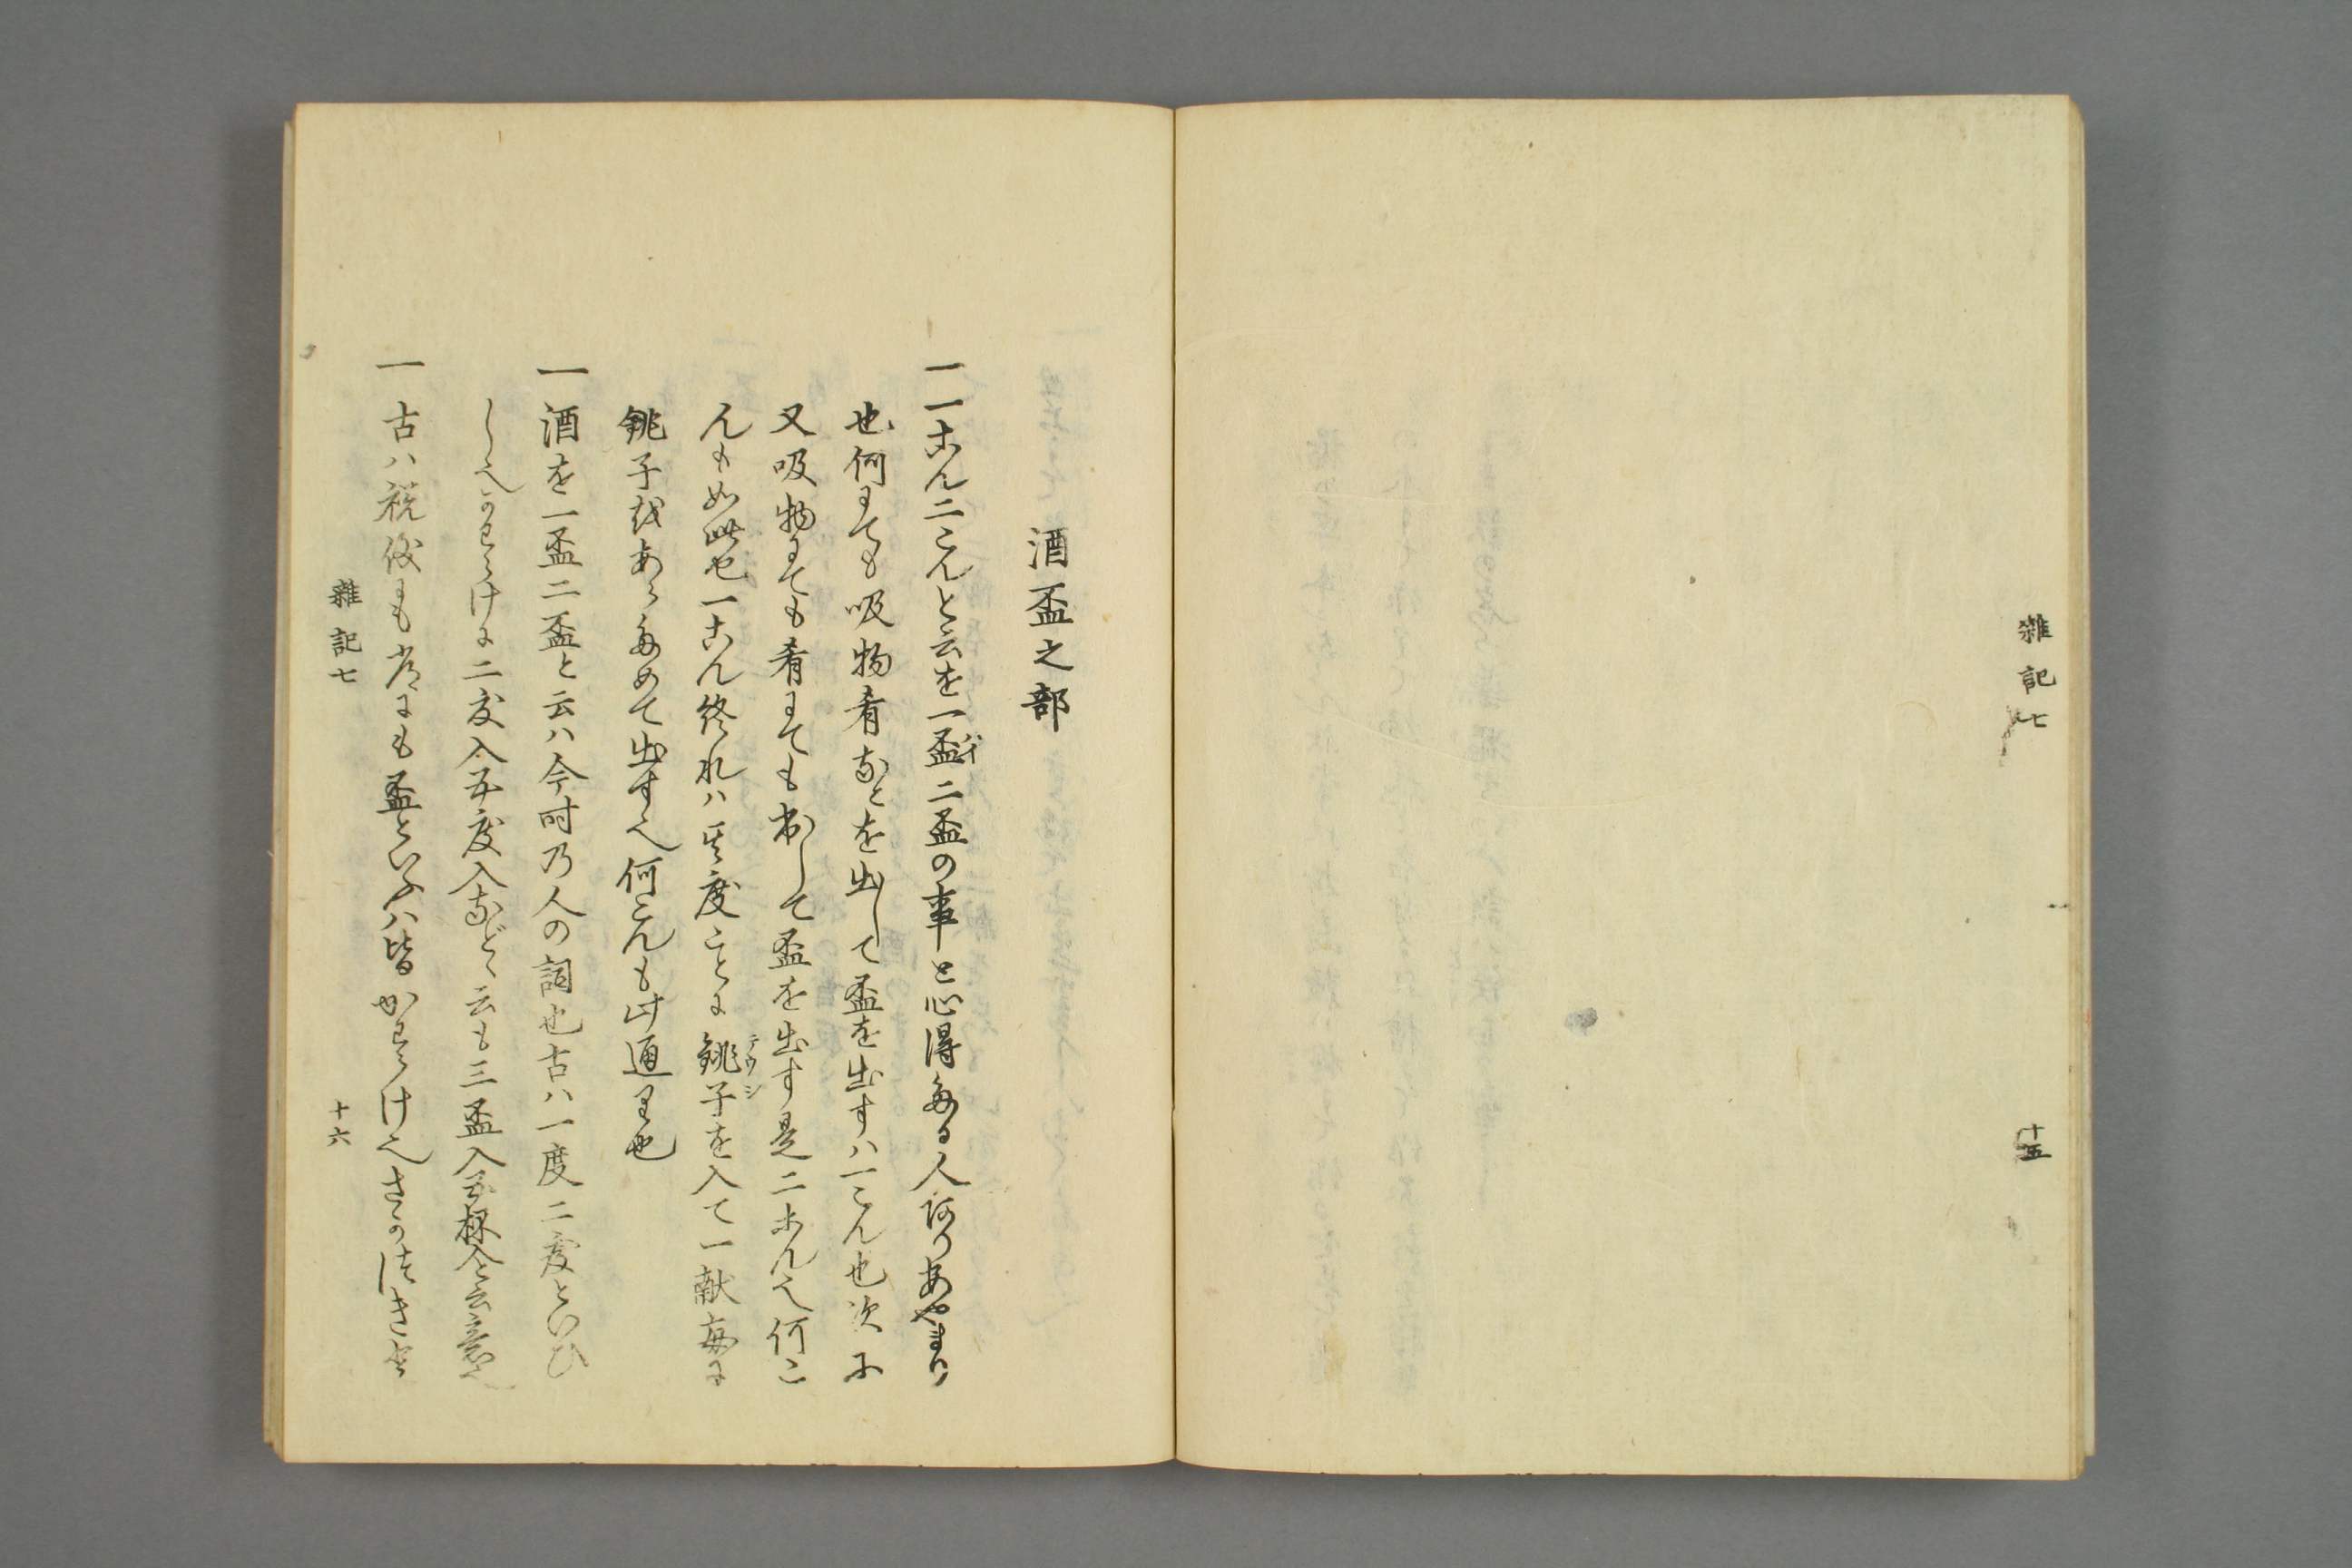 雑記七
十五
酒盃之部
一一こん二こんと云を一盃二盃の事と心得たる人有りあやまり
ハイ
也何にても吸物肴などを出して盃を出すハ一こん也次に
又吸物にても肴にても出して盃を出す是二こん也何こ
んも如此也一こん終れハ其度ことに銚子を入て一献毎に
テウシ
銚子をあらためて出す也何こんも此通り也
一酒を一盃二盃と云ハ今時乃人の詞也古ハ一度二度といひ
し也かわらけに二度入五度入など云も三盃入五盃入と云意也
一古ハ祝儀にも常にも盃といふハ皆かわらけ也さかつきを
雑記七
十六